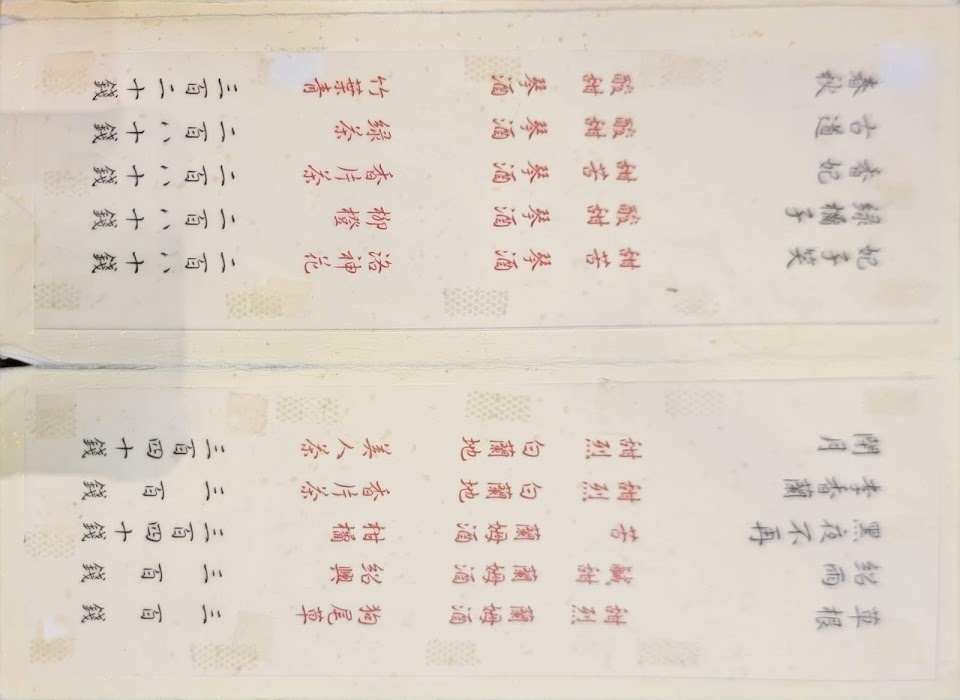 草根 甜烈 蘭姆酒 狗尾草 三百錢
紹雨 鹹甜 蘭姆酒 紹興 三百錢
黑夜不再 苦 蘭姆酒 柑橘 三百四十錢
李香蘭 甜烈 白蘭地 香片茶 三百錢
閉月 甜烈 白蘭地 美人茶 三百四十錢
妃子笑 甜苦 琴酒 洛神花 二百八十錢
綠橘子 酸甜 琴酒 柳橙 二百八十錢
香妃 甜苦 琴酒 香片茶 二百八十錢
古道 酸甜 琴酒 綠茶 二百八十錢
春秋 酸甜 琴酒 竹葉青 三百二十錢